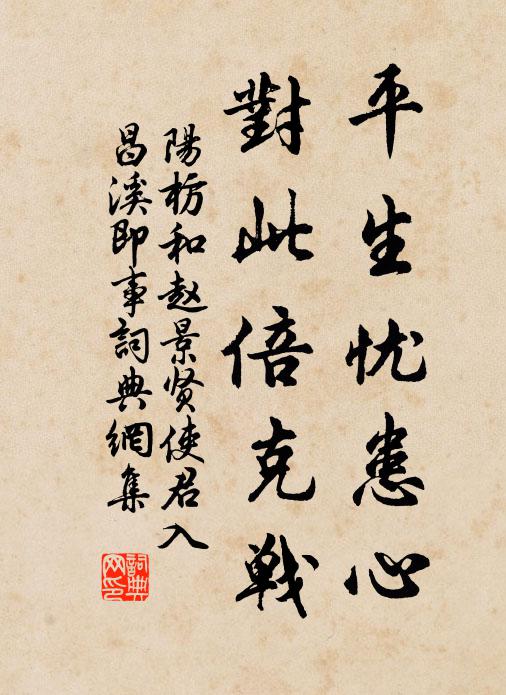 平生忧患心
對此倍克戦
陽枋和赵景贤使君入
昌溪即事詞典網集
詞典网印